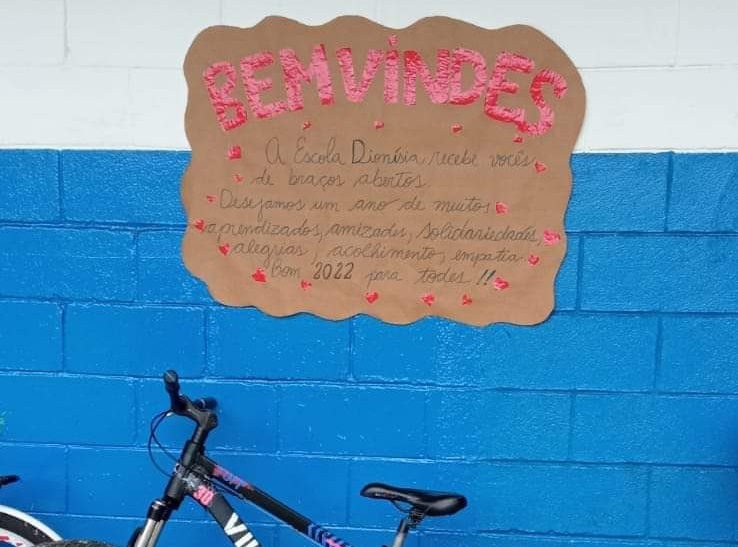 BEMVINDES
A Escola Dionísia recebe vocês,
de braços abertos.
Desejamos um ano de muitos
aprendizados, amizades, solidariedades,
alegrias, acolhimento, empatia.
Bom 2022 para todes!!
30
VI